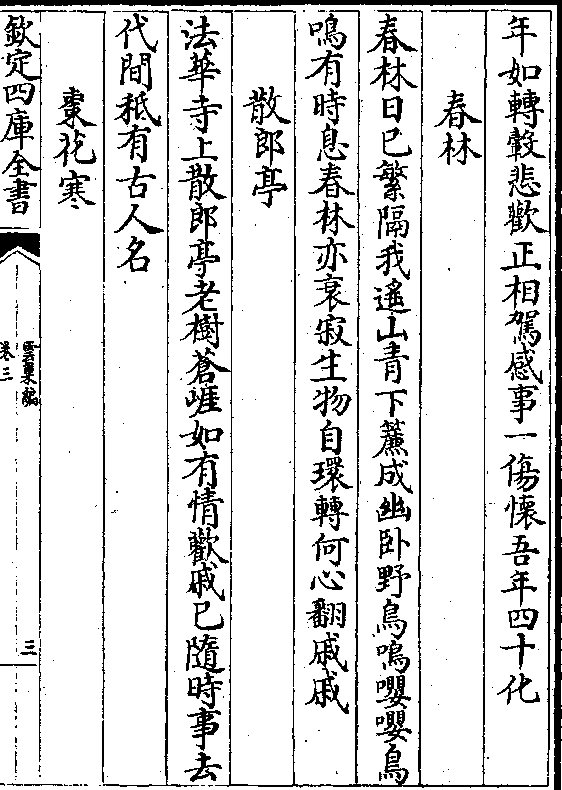 年如轉轂悲歡正相駕感事一傷懷吾年四十化
春林
春林日已繁隔我遙山青下簾成幽卧野鳥鳴嚶嚶鳥
鳴有時息春林亦哀寂生物自環轉何心翻戚戚
散郎亭
法華寺上散郎亭老樹蒼崕如有情歡戚已隨時事去
代間秖有古人名
棗花寒
欽定四庫全書
雲巢編
卷三
三